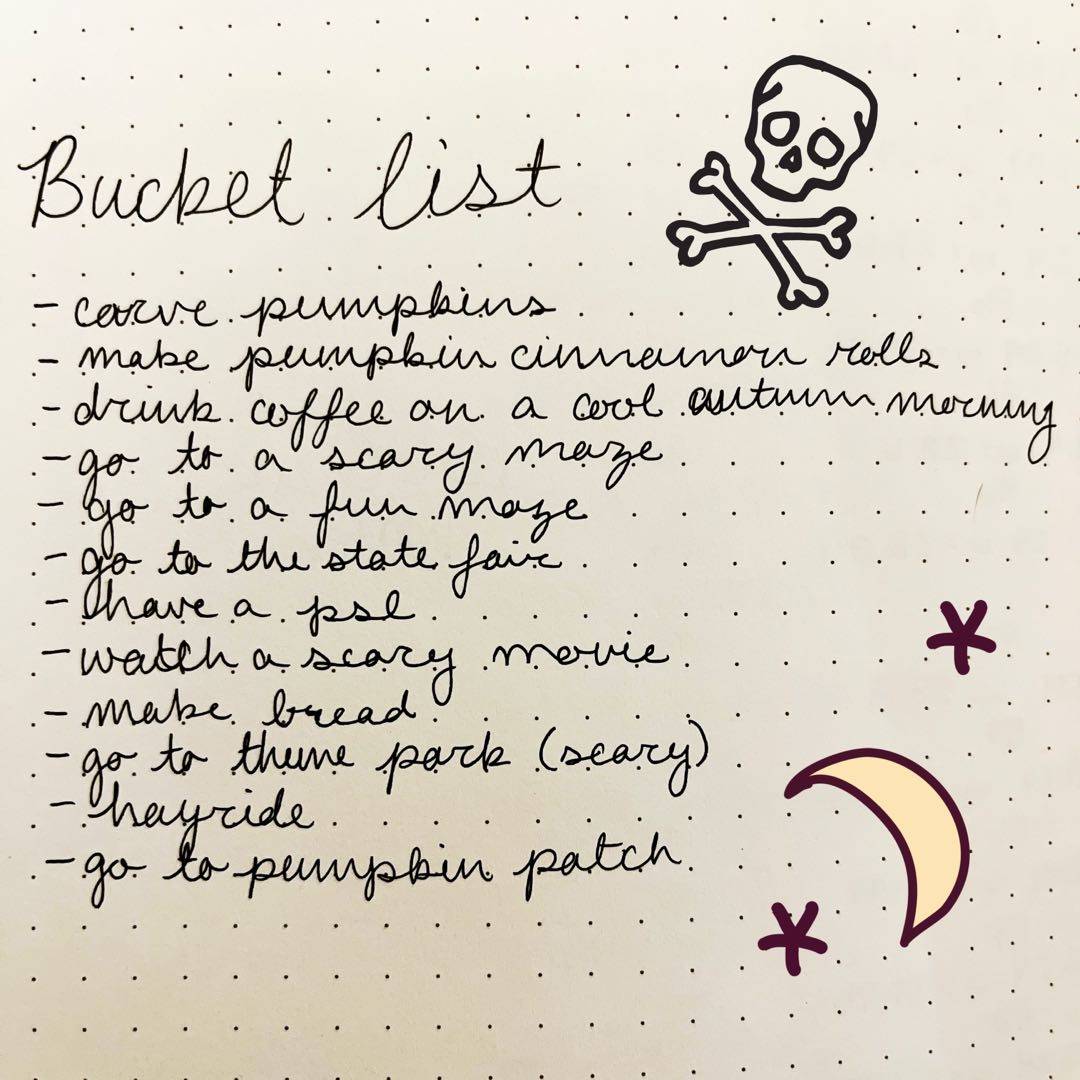 Bucket list
- carve pumpkins
- make pumpkin cinnamon rolls
- drink coffee on a cool autumn morning
- go to a scary maze
- go to a fun maze
- go to the state fair
- have a psl
- watch a scary movie
- make bread
- go to theme park (scary)
- hayride
- go to pumpkin patch